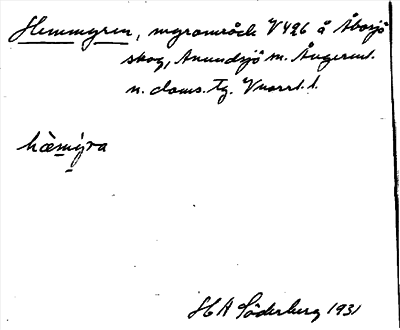 Hemmyren, myrområde V426 å Åbosjö
skog, Anundsjö sn. Ångerml.
n. doms. tg. Vnorrl. l.
hæ̀mýra
HA Söderberg 1931